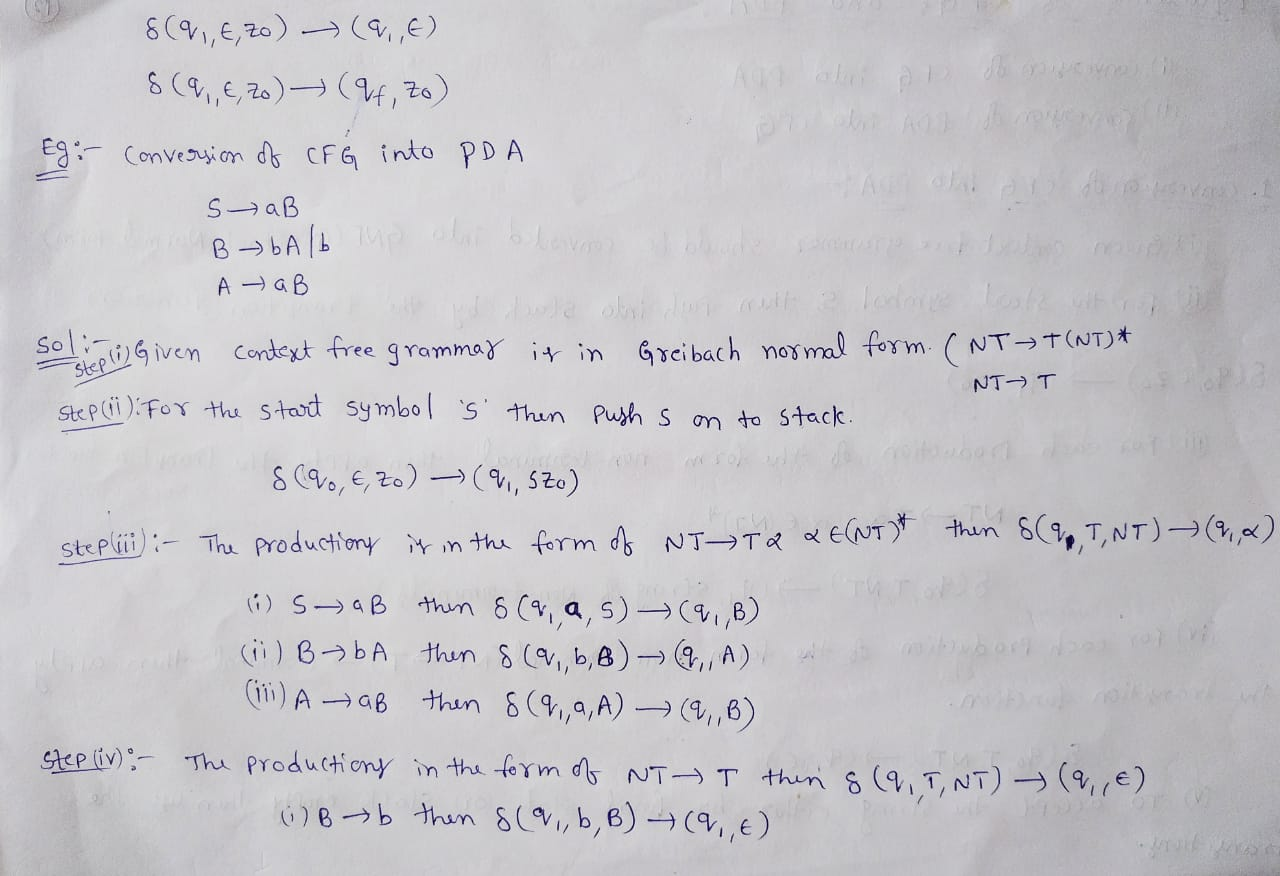 δ(q₁, ε, z₀) → (q₁, ε)
δ(q₁, ε, z₀) → (qf, z₀)
Eg:- Conversion of CFG into PDA
S → aB
B → bA/b
A → aB
Sol:- Step(i) Given context free grammar is in Greibach normal form. ( NT → T(NT)*
NT → T
Step(ii): For the start symbol 's' then push s on to stack.
δ(q₀, ε, z₀) → (q₁, Sz₀)
Step(iii):- The productions is in the form of NT → Tα α ∈ (NT)* then δ(q₁, T, NT) → (q₁, α)
(i) S → aB then δ(q₁, a, S) → (q₁, B)
(ii) B → bA then δ(q₁, b, B) → (q₁, A)
(iii) A → aB then δ(q₁, a, A) → (q₁, B)
Step(iv):- The productions in the form of NT → T then δ(q₁, T, NT) → (q₁, ε)
(i) B → b then δ(q₁, b, B) → (q₁, ε)